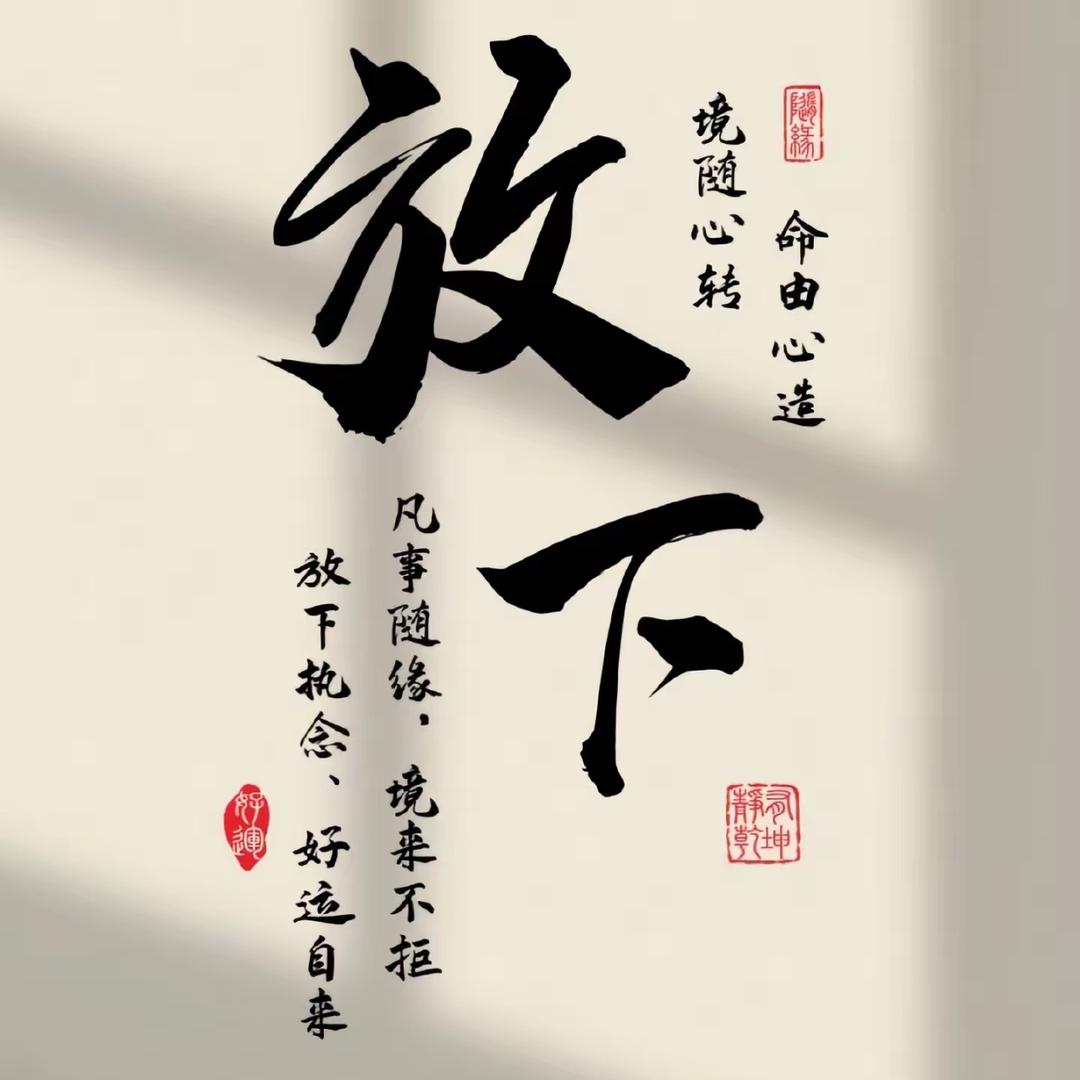 随緣
命由心造
境随心转
放下
凡事随缘，境来不拒
放下执念、好运自来
好運